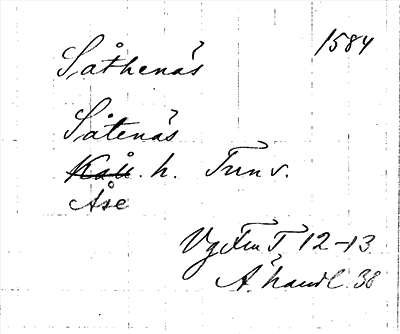 Såthenäs 1584
Såtenäs
Kåll. h. Tun v.
Åse
Vg Fm T 12-13
Ä. handl. 38